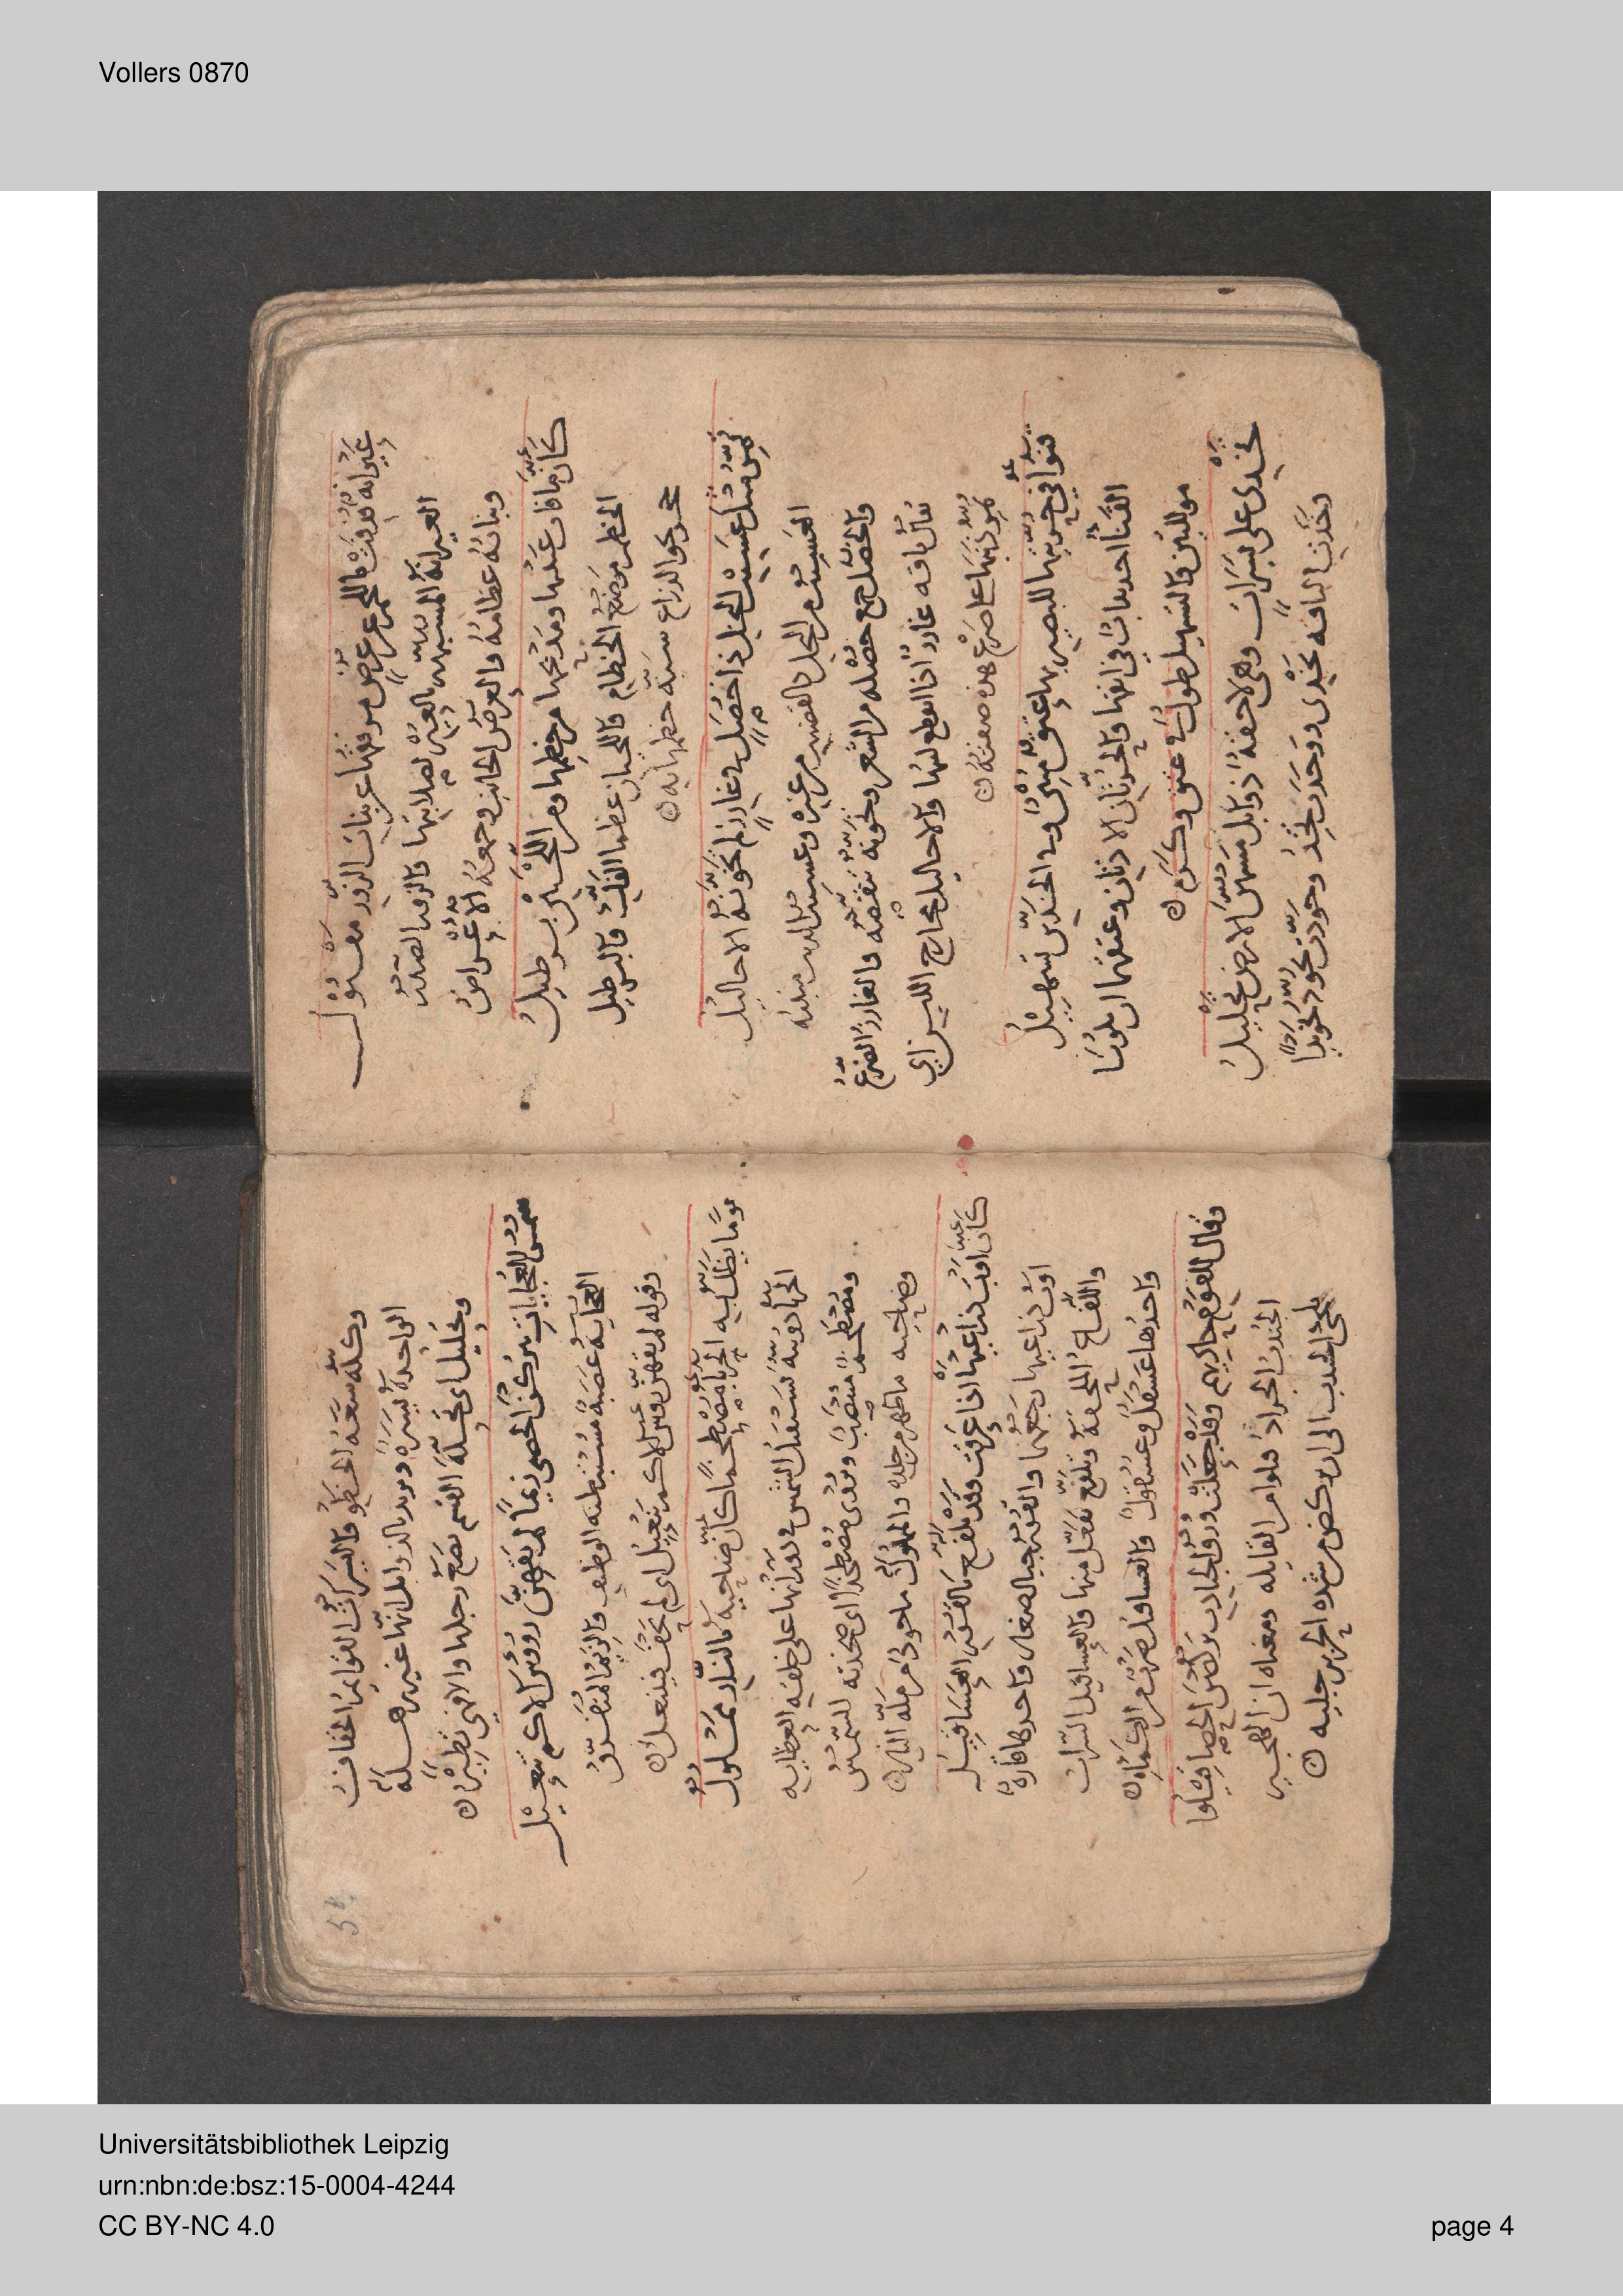 Vollers 0870
عَيْرانة قُذِفَتْ باللحم عن عُرُضٍ مرفقها عن بنات الزور مفتول
العيرانة المشبهة بالعير لصلابتها والزور الصدر
وبناته عظامه والعرض الجانب وجمعه الاعراض
كأن ما فات عينيها ومذبحها من خطمها ومن اللحيين برطيل
الخطم موضع الخطام واللحيان عظما الفك والبرطيل
حجر نحو الذراع شبه خطمها به
تمر مثل عسيب النخل ذا خصل في غارز لم تخونه الاحاليل
العسيب من النخل كالقضيب من غيره وعسيب الذنب منبته
والخصل جمع خصلة من الشعر وتخونه تنقصه والغارز الضرع
يقال ناقة غارز اذا انقطع لبنها والاحاليل مخارج اللبن اي
تمر ذنبها على ضرع هذه صفته
قنوا في حرتيها للبصير بها عتق مبين وفي الخدين تسهيل
القنا احديداب في انفها والحرتان الاذنان وعتقهما ان يكونا
موللتين والتسهيل طول في عنق وكرم
تخدى على يسرات وهي لاحقة ذوابل مسهن الارض تحليل
وخدت الناقة تخدى ووخدت تخد وخودت تخود تخويدا
وكله سعة الخطو واليسرات القوائم الخفاف
الواحدة يسرة ويريد بالذوابل انها غير رهلة
وتحليل اي تحلة القسم تضع رجلها والاخرى تطير
سمر العجايات يتركن الحصى زيما لم يقهن رووس الاكم تنعيل
العجاية عصبة مستبطنة الوظيف والزيم المتفرق
وقوله لم يقهن روس الاكم تنعيل اي لم تحف فتنعل
يوما يظل به الحربا مصطخما كان ضاحيه بالنار مملول
الحربا دويبة تستقبل الشمس في دورانها على خلقه العظايه
ومصطخم منتصب ويروى مصطخدا اي صخدته الشمس
وضاحيه ما ظهر من جلده والمملول ماخوذ من ملة النار
كان اوب ذراعيها اذا عرقت وقد تلفع بالقور العساقيل
اوب ذراعيها رجعهما والقور جبال صغار واحدها قارة
واللفاع الملحفة وتلفع تفعل منها والعساقيل السراب
واحدها عسقل وعسقول والعساقيل ضرب من الكماة
وقال للقوم حاديهم وقد جعلت ورق الجنادب يركضن الحصا قيلوا
الجندب الجراد قيلوا من القايله ومعناه ان الهجير
يلجئ الجندب الى ان يركض من شدة الحر برجليه
Universitätsbibliothek Leipzig
urn:nbn:de:bsz:15-0004-4244
CC BY-NC 4.0
page 4